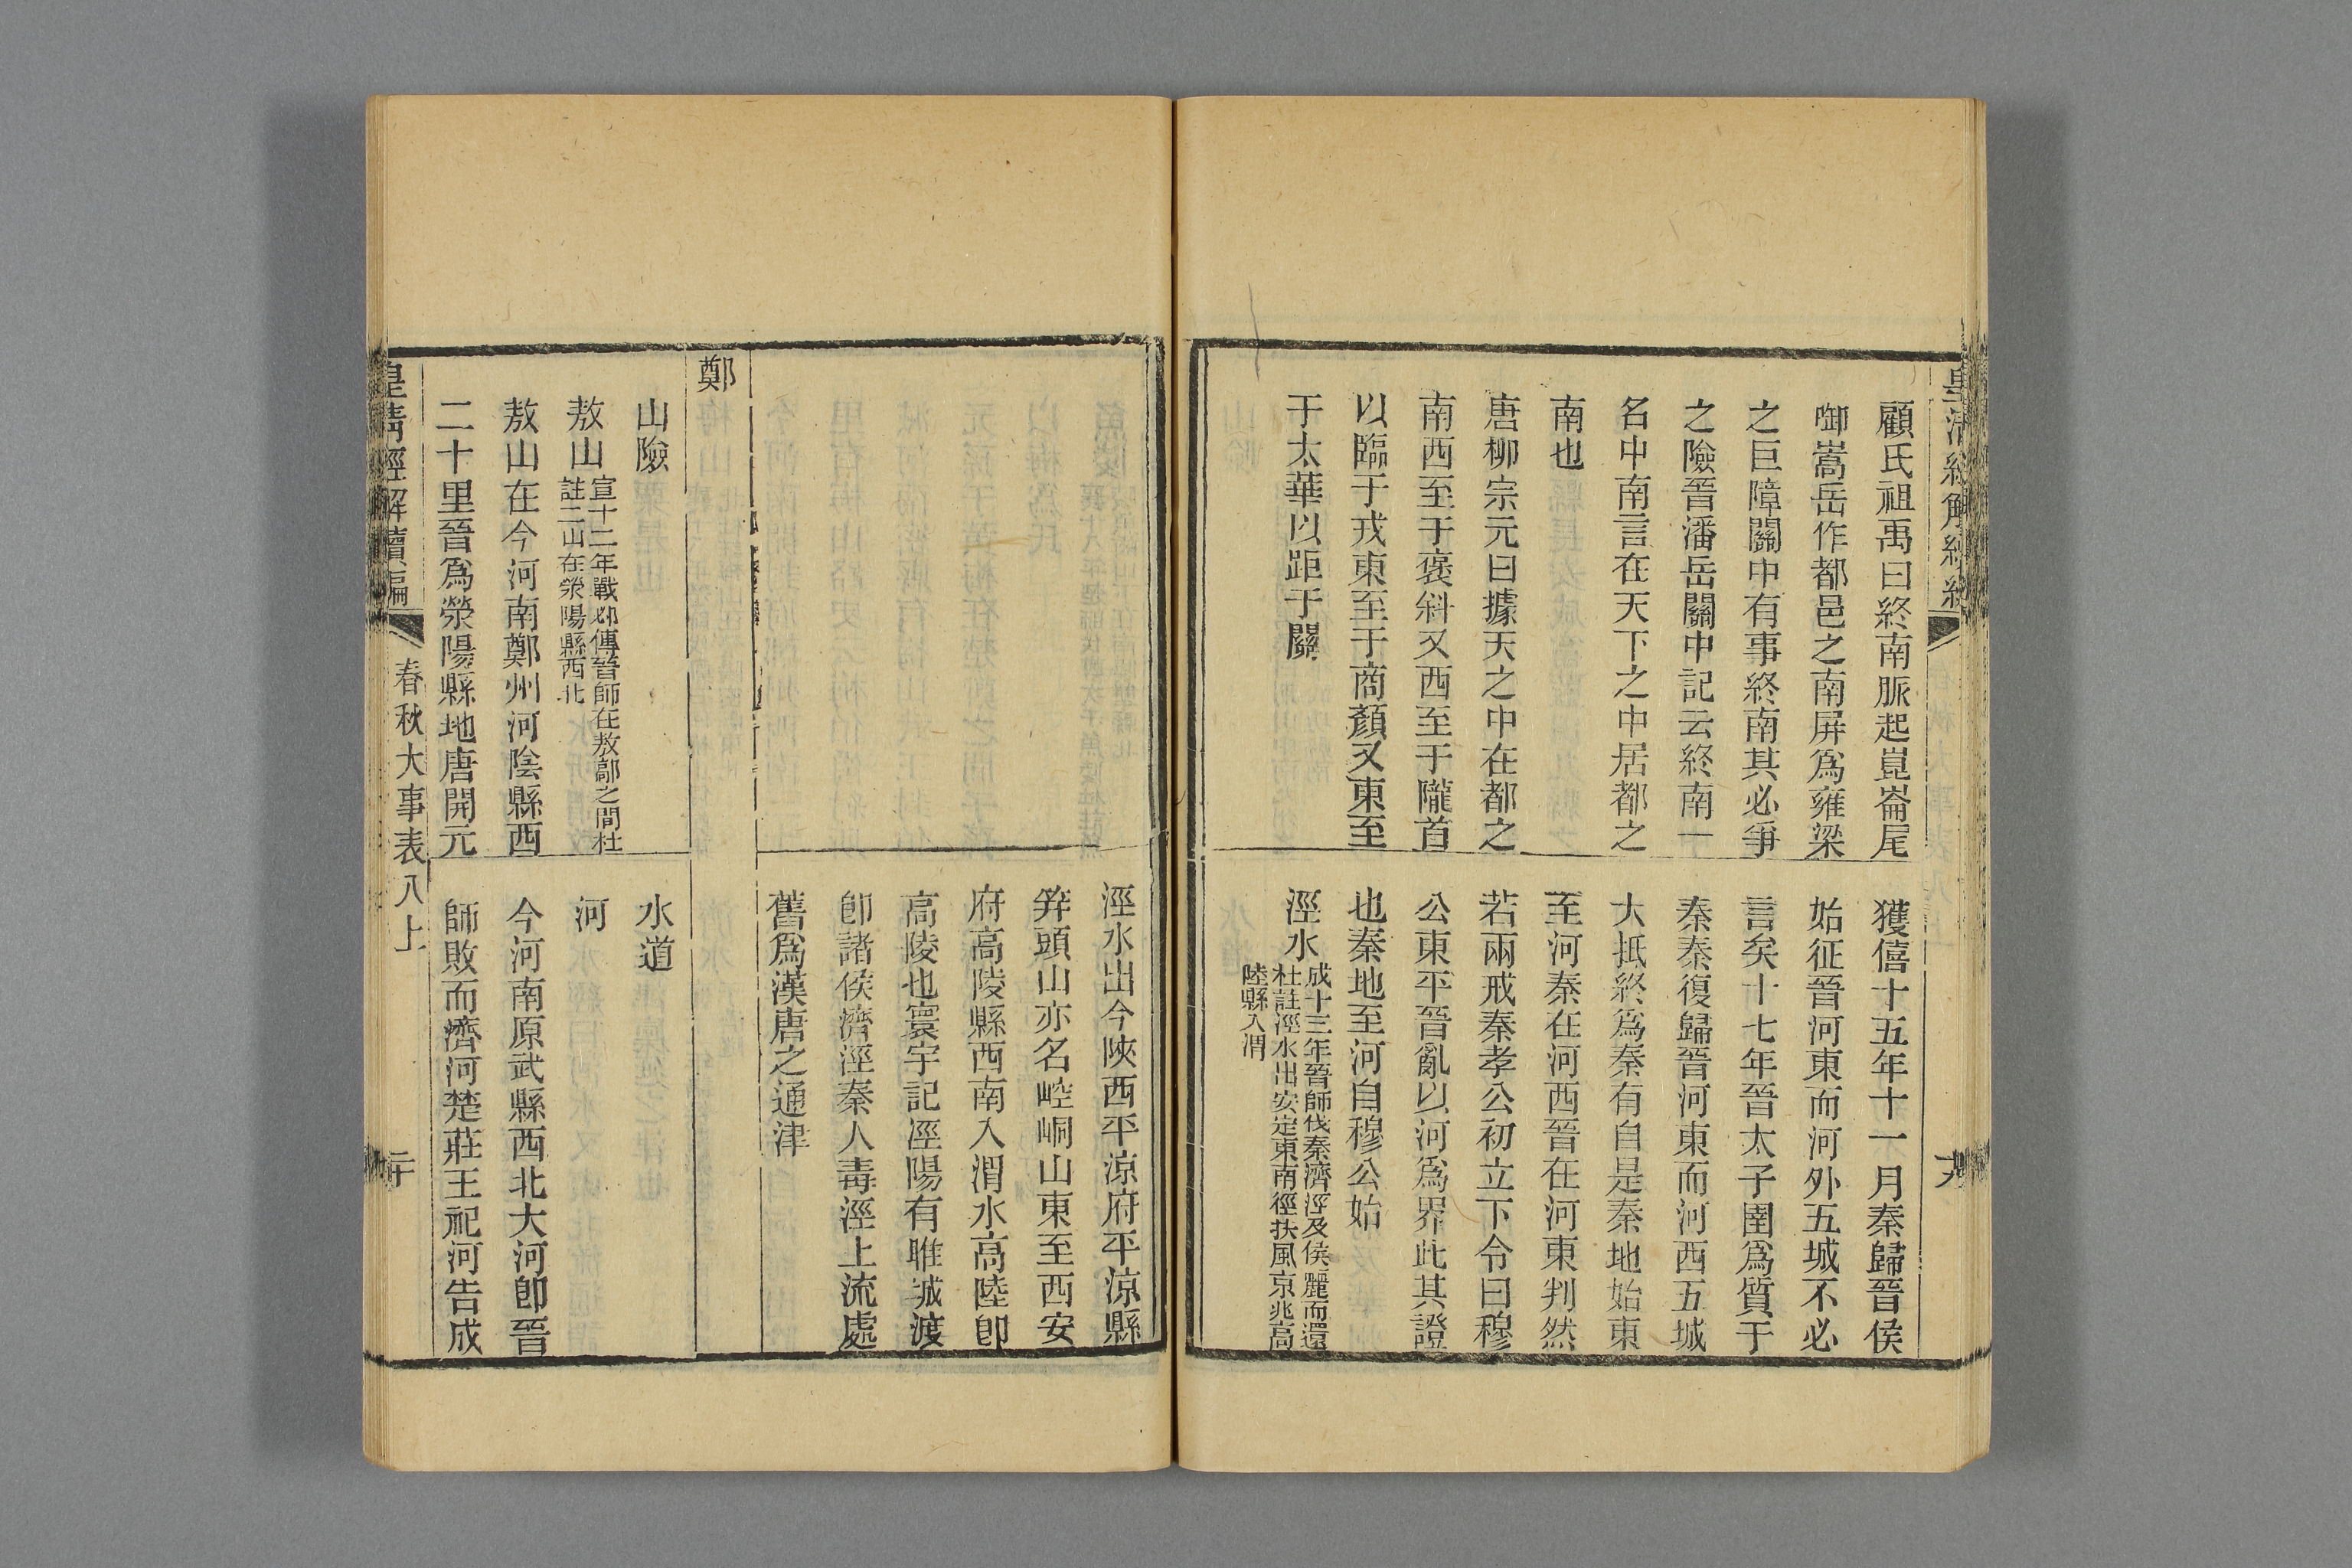 顧氏祖禹曰終南脈起崑崙尾
啣嵩岳作都邑之南屏爲雍梁
之巨障關中有事終南其必爭
之險晉潘岳關中記云終南一
名中南言在天下之中居都之
南也
唐柳宗元曰據天之中在都之
南西至于褒斜又西至于隴首
以臨于戎東至于商顏又東至
于太華以距于關
獲僖十五年十一月秦歸晉侯
始征晉河東而河外五城不必
言矣十七年晉太子圉爲質于
秦秦復歸晉河東而河西五城
大抵終爲秦有自是秦地始東
至河秦在河西晉在河東判然
若兩戒秦孝公初立下令曰穆
公東平晉亂以河爲界此其證
也秦地至河自穆公始
涇水
成十三年晉師伐秦濟涇及侯麗而還
杜註涇水出安定東南徑扶風京兆高
陸縣入渭
涇水出今陝西平涼府平涼縣
笄頭山亦名崆峒山東至西安
府高陵縣西南入渭水高陸卽
高陵也寰宇記涇陽有睢城渡
卽諸侯濟涇秦人毒涇上流處
舊爲漢唐之通津
鄭
山險
敖山
宣十二年戰邲傳晉師在敖鄗之間杜
註二山在滎陽縣西北
敖山在今河南鄭州河陰縣西
二十里晉爲滎陽縣地唐開元
水道
河
今河南原武縣西北大河卽晉
師敗而濟河楚莊王祀河告成
皇清經解續編
春秋大事表八上